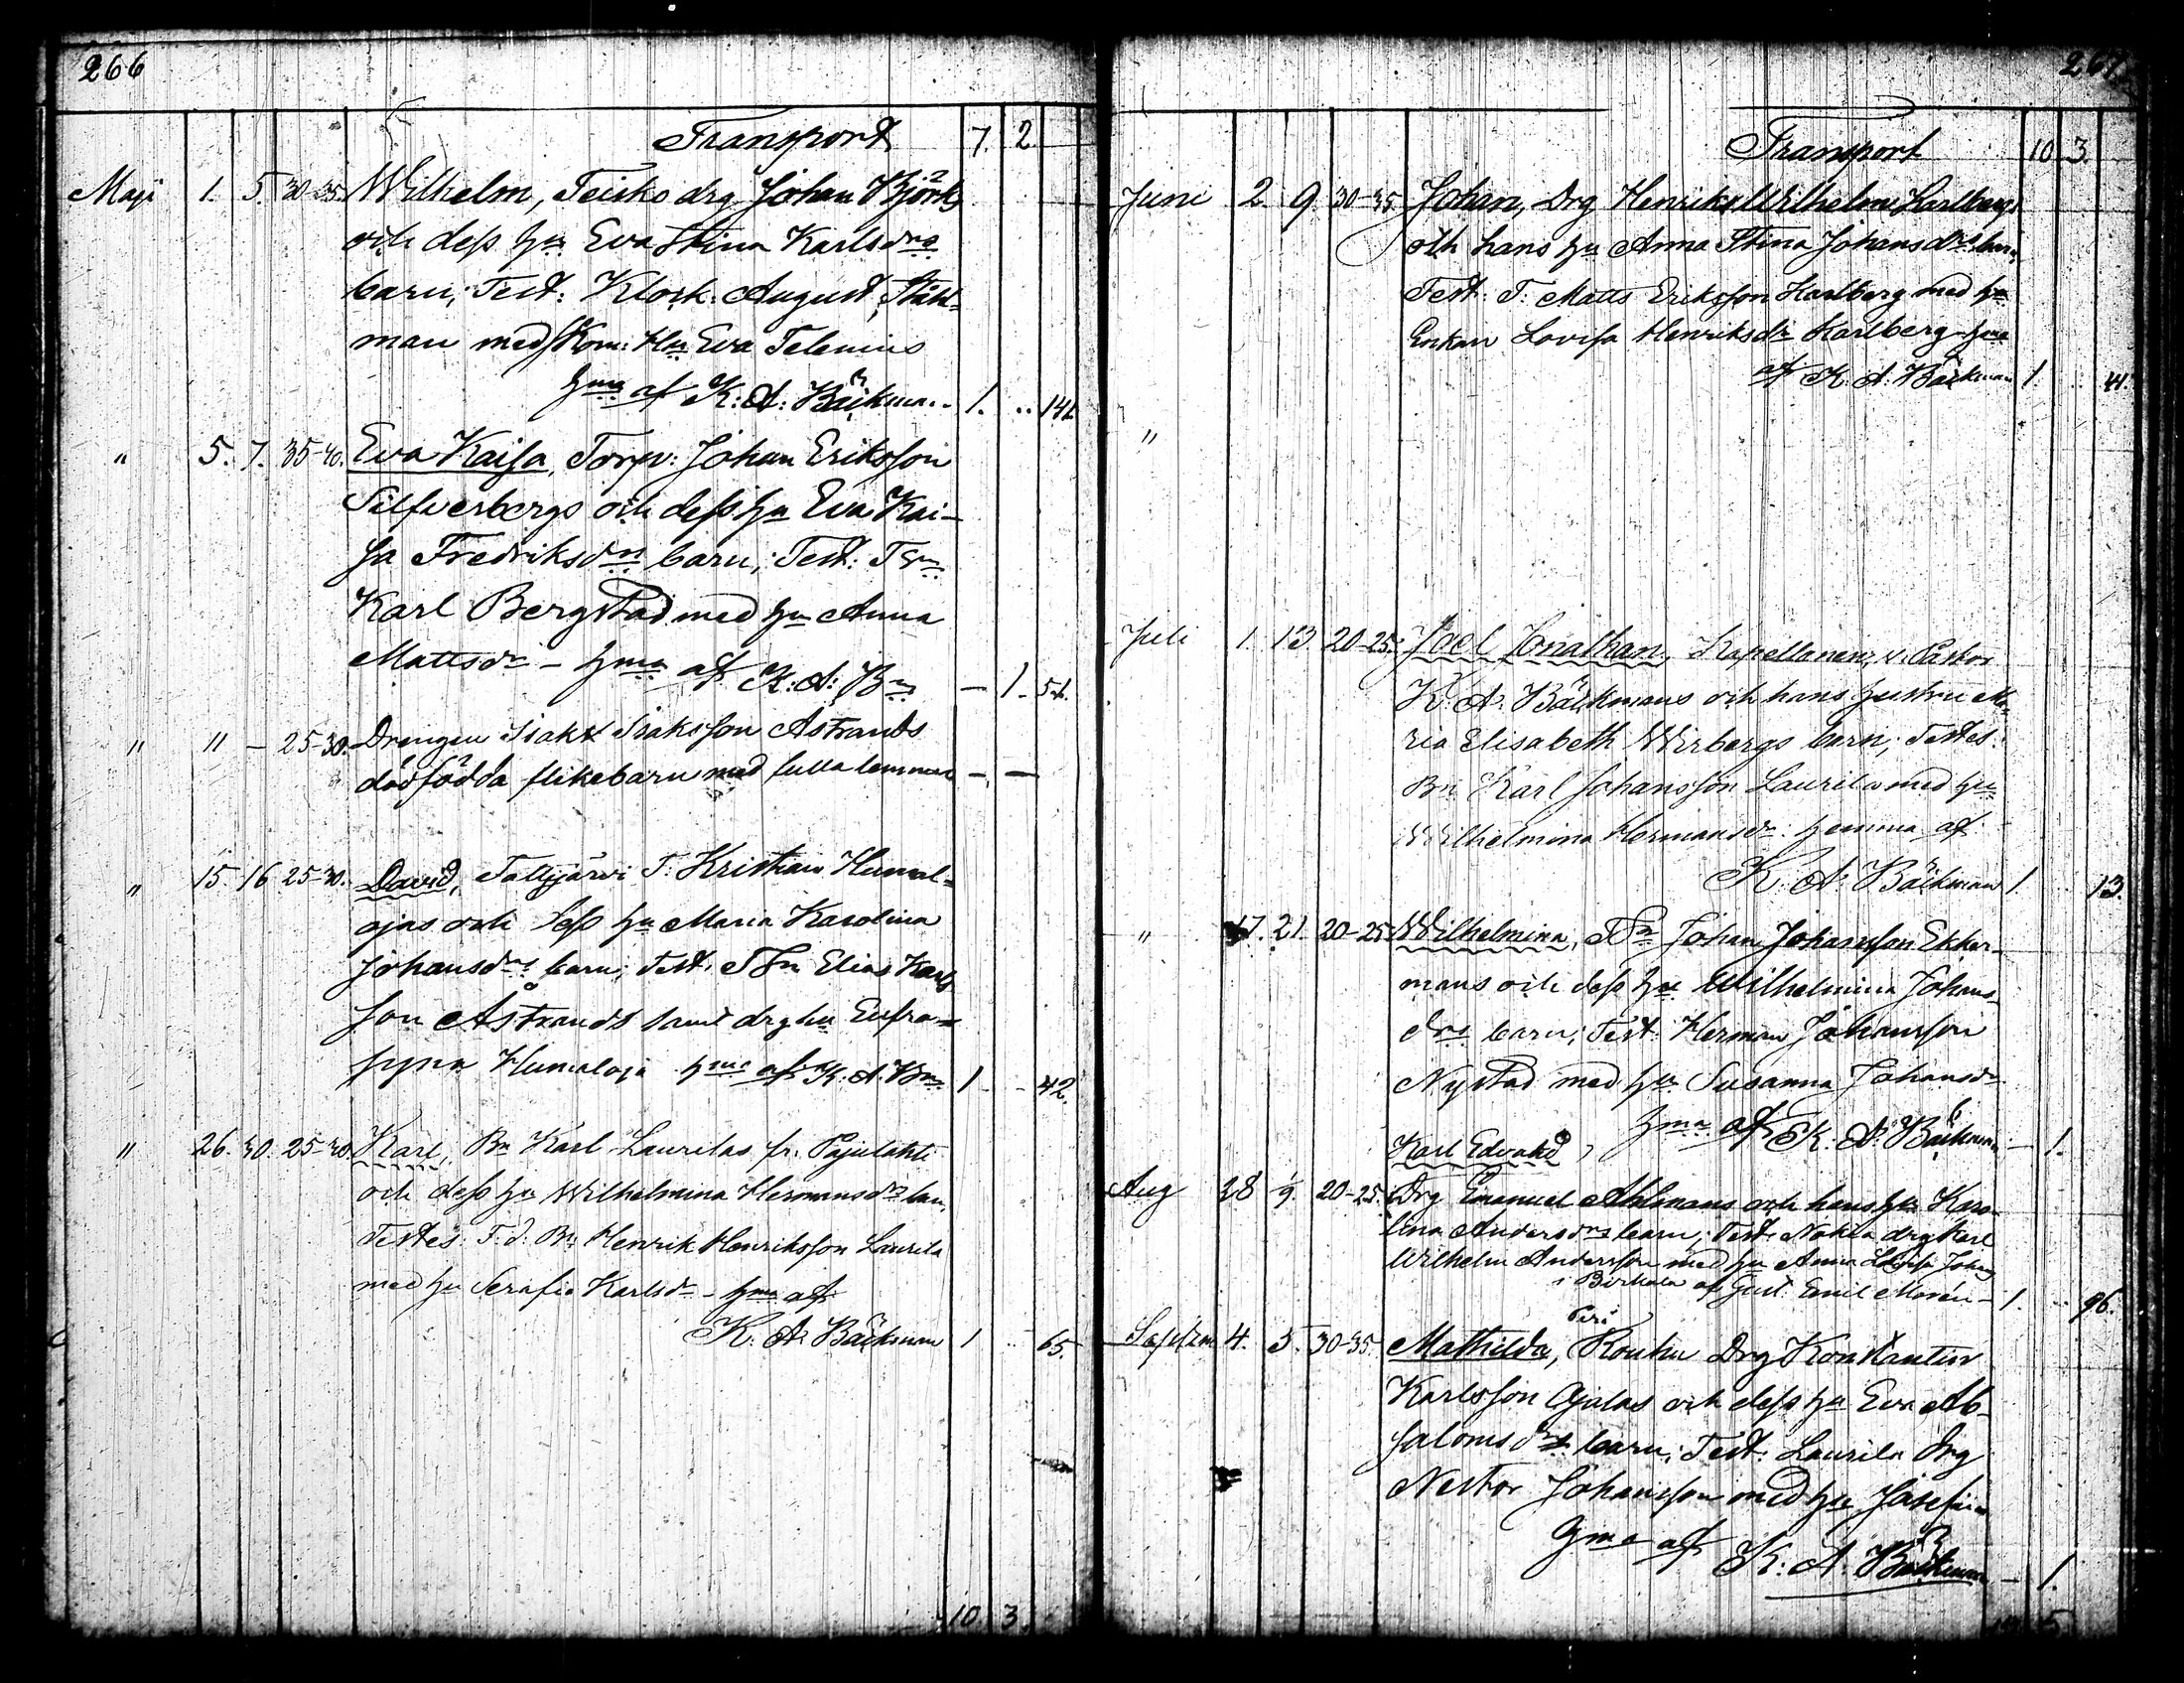 266
Transport 7. 2.
Maji 1. 5. 30-35. Wilhelm, Teisko drg Johan Björks
och dess hu Eva Stina Karlsdrs
barn; Test: Klock: August Ståhl-
man med Kom: Hu Eva Telenius
hma af K: A: Bäckman - 1. 142
" 5. 7. 35-40. Eva Kajsa, Torp: Johan Eriksson
Silfverbergs och dess hu Eva Kai-
sa Fredriksdrs barn; Test: Tn
Karl Bergstad med hu Anna
Mattsdr - hma af K: A: Bn - 1. 54.
" " - 25-30. Drengen Isak Isaksson Åstrands
dödfödda flikebarn med fulla lemmar - -
" 15. 16 25-30. David, Tottijärvi T: Kristian Humal-
ojas och dess hu Maria Karolina
Johansdrs barn; Test: Elias Karls
son Åstrands samt drg hu Eufro-
syna Humaloja hma af K. A. Bn 1 - 42.
" 26. 30. 25-30. Karl, Bn Karl Laurilas fr. Pajulahti
och dess hu Wilhelmina Hermansdrs barn,
Testes: F. d. Bn: Henrik Henriksson Laurila
med hu Serafia Karlsdr - hma af
K. A. Bäckman 1 65.
10. 3.
267
Transport 10. 3.
Juni 2. 9. 30-35. Johan, Drg Henrik Wilhelm Karlbergs
och hans hu Anna Stina Johansdrs barn,
Test: T: Matts Eriksson Karlberg med hu
Enkan Lovisa Henriksdr Karlberg hma
af K. A. Bäckman 1. 44.
"
Juli 1. 13. 20-25. Joel Jonathan, Kapellanen, v. Pastor
K. A. Bäckmans och hans hustru Ma-
ria Elisabeth Wirbergs barn; Testes:
Bn Karl Johansson Laurila med hu
Wilhelmina Hermansdr: hemma af
K. A. Bäckman 1. 13.
" 17. 21. 20-25. Wilhelmina, Johan Johansson Ekker-
mans och dess hu Wilhelmina Johans-
drs barn; Test: Herman Johansson
Nystad med hu Susanna Johansdr
hma af K. A. Bäckman - 1.
Karl Edvard,
Aug 28 1/9. 20-25. Drg Emanuel Ahlmans och hans hu Karo-
lina Andersdrs barn; Test: Nokia drg Karl
Wilhelm Andersson med hu Anna Lovisa Johans
i Birkala af Gust. Emil Morén - 1. 96.
Piri
Septem 4. 5. 30-35. Mathilda, Kouhu Drg Konstantin
Karlsson Ojalas och dess hu Eva Ab-
salomsdrs barn; Test: Laurila drg
Nestor Johansson med hu Josefin
hma af K. A. Bäckman - 1.
5.